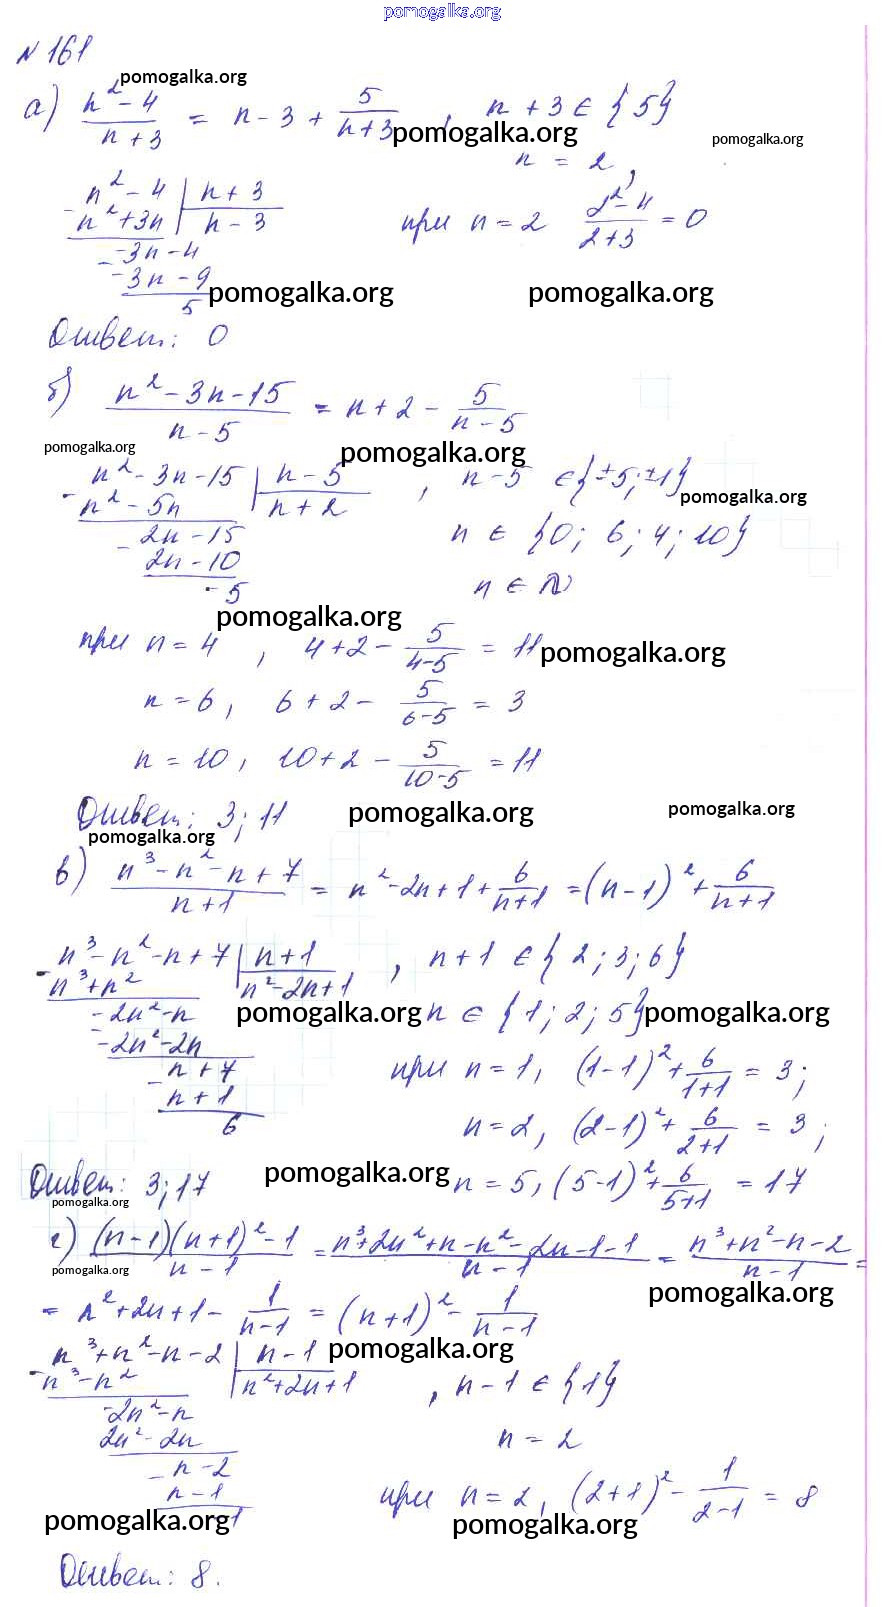 pomogalka.org
№ 161
pomogalka.org
а) (n² - 4)/(n + 3) = n - 3 + 5/(n + 3), n + 3 ∈ {5}
pomogalka.org pomogalka.org
n = 2,
n² - 4 | n + 3
- n² + 3n | n - 3 при n = 2 (2² - 4)/(2 + 3) = 0
-3n - 4
- -3n - 9
5 pomogalka.org pomogalka.org
Ответ: 0
б) (n² - 3n - 15)/(n - 5) = n + 2 - 5/(n - 5)
pomogalka.org pomogalka.org
n² - 3n - 15 | n - 5 , n - 5 ∈ {±5; ±1}
pomogalka.org
- n² - 5n | n + 2
2n - 15 n ∈ {0; 6; 4; 10}
- 2n - 10
-5 n ∈ N
pomogalka.org
при n = 4, 4 + 2 - 5/(4-5) = 11 pomogalka.org
n = 6, 6 + 2 - 5/(6-5) = 3
n = 10, 10 + 2 - 5/(10-5) = 11
Ответ: 3; 11 pomogalka.org pomogalka.org
pomogalka.org
в) (n³ - n² - n + 7)/(n + 1) = n² - 2n + 1 + 6/(n+1) = (n - 1)² + 6/(n+1)
n³ - n² - n + 7 | n + 1 , n + 1 ∈ {2; 3; 6}
- n³ + n² | n² - 2n + 1
-2n² - n pomogalka.org n ∈ {1; 2; 5} pomogalka.org
- -2n² - 2n
n + 7 при n = 1, (1-1)² + 6/(1+1) = 3;
- n + 1
6 n = 2, (2-1)² + 6/(2+1) = 3;
Ответ: 3; 17 pomogalka.org n = 5, (5-1)² + 6/(5+1) = 17
pomogalka.org
г) ((n-1)(n+1)² - 1)/(n - 1) = (n³ + 2n² + n - n² - 2n - 1 - 1)/(n - 1) = (n³ + n² - n - 2)/(n - 1) =
pomogalka.org pomogalka.org
= n² + 2n + 1 - 1/(n-1) = (n+1)² - 1/(n-1)
n³ + n² - n - 2 | n - 1 pomogalka.org
- n³ - n² | n² + 2n + 1 , n - 1 ∈ {1}
-2n² - n
2n² - 2n n = 2
- n - 2
n - 1 при n = 2, (2+1)² - 1/(2-1) = 8
-1
pomogalka.org pomogalka.org
Ответ: 8.